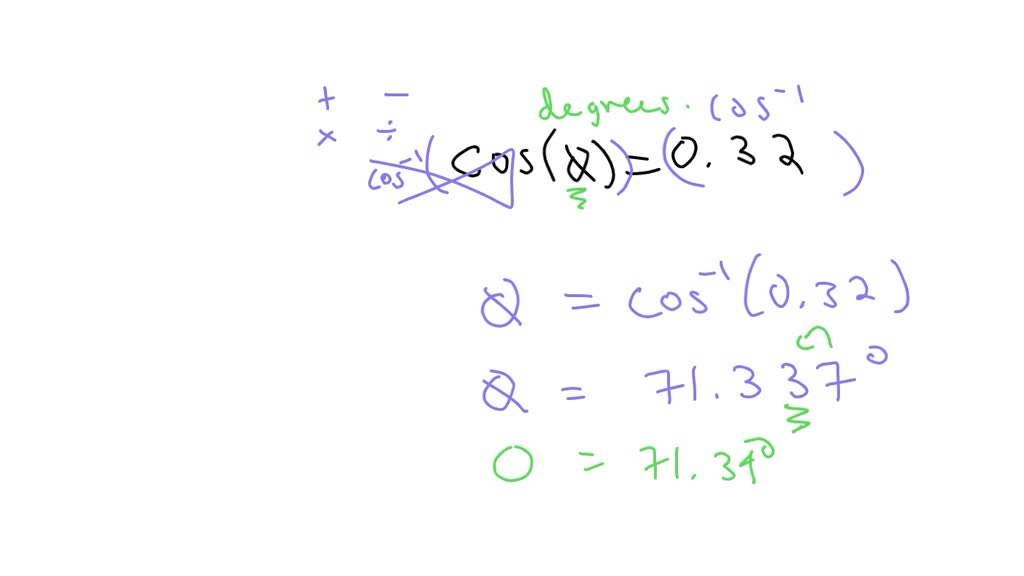 + − degrees. cos⁻¹
× ÷
cos⁻¹(cos(θ)) = (0.32)
θ = cos⁻¹(0.32)
θ = 71.337°
θ = 71.34°